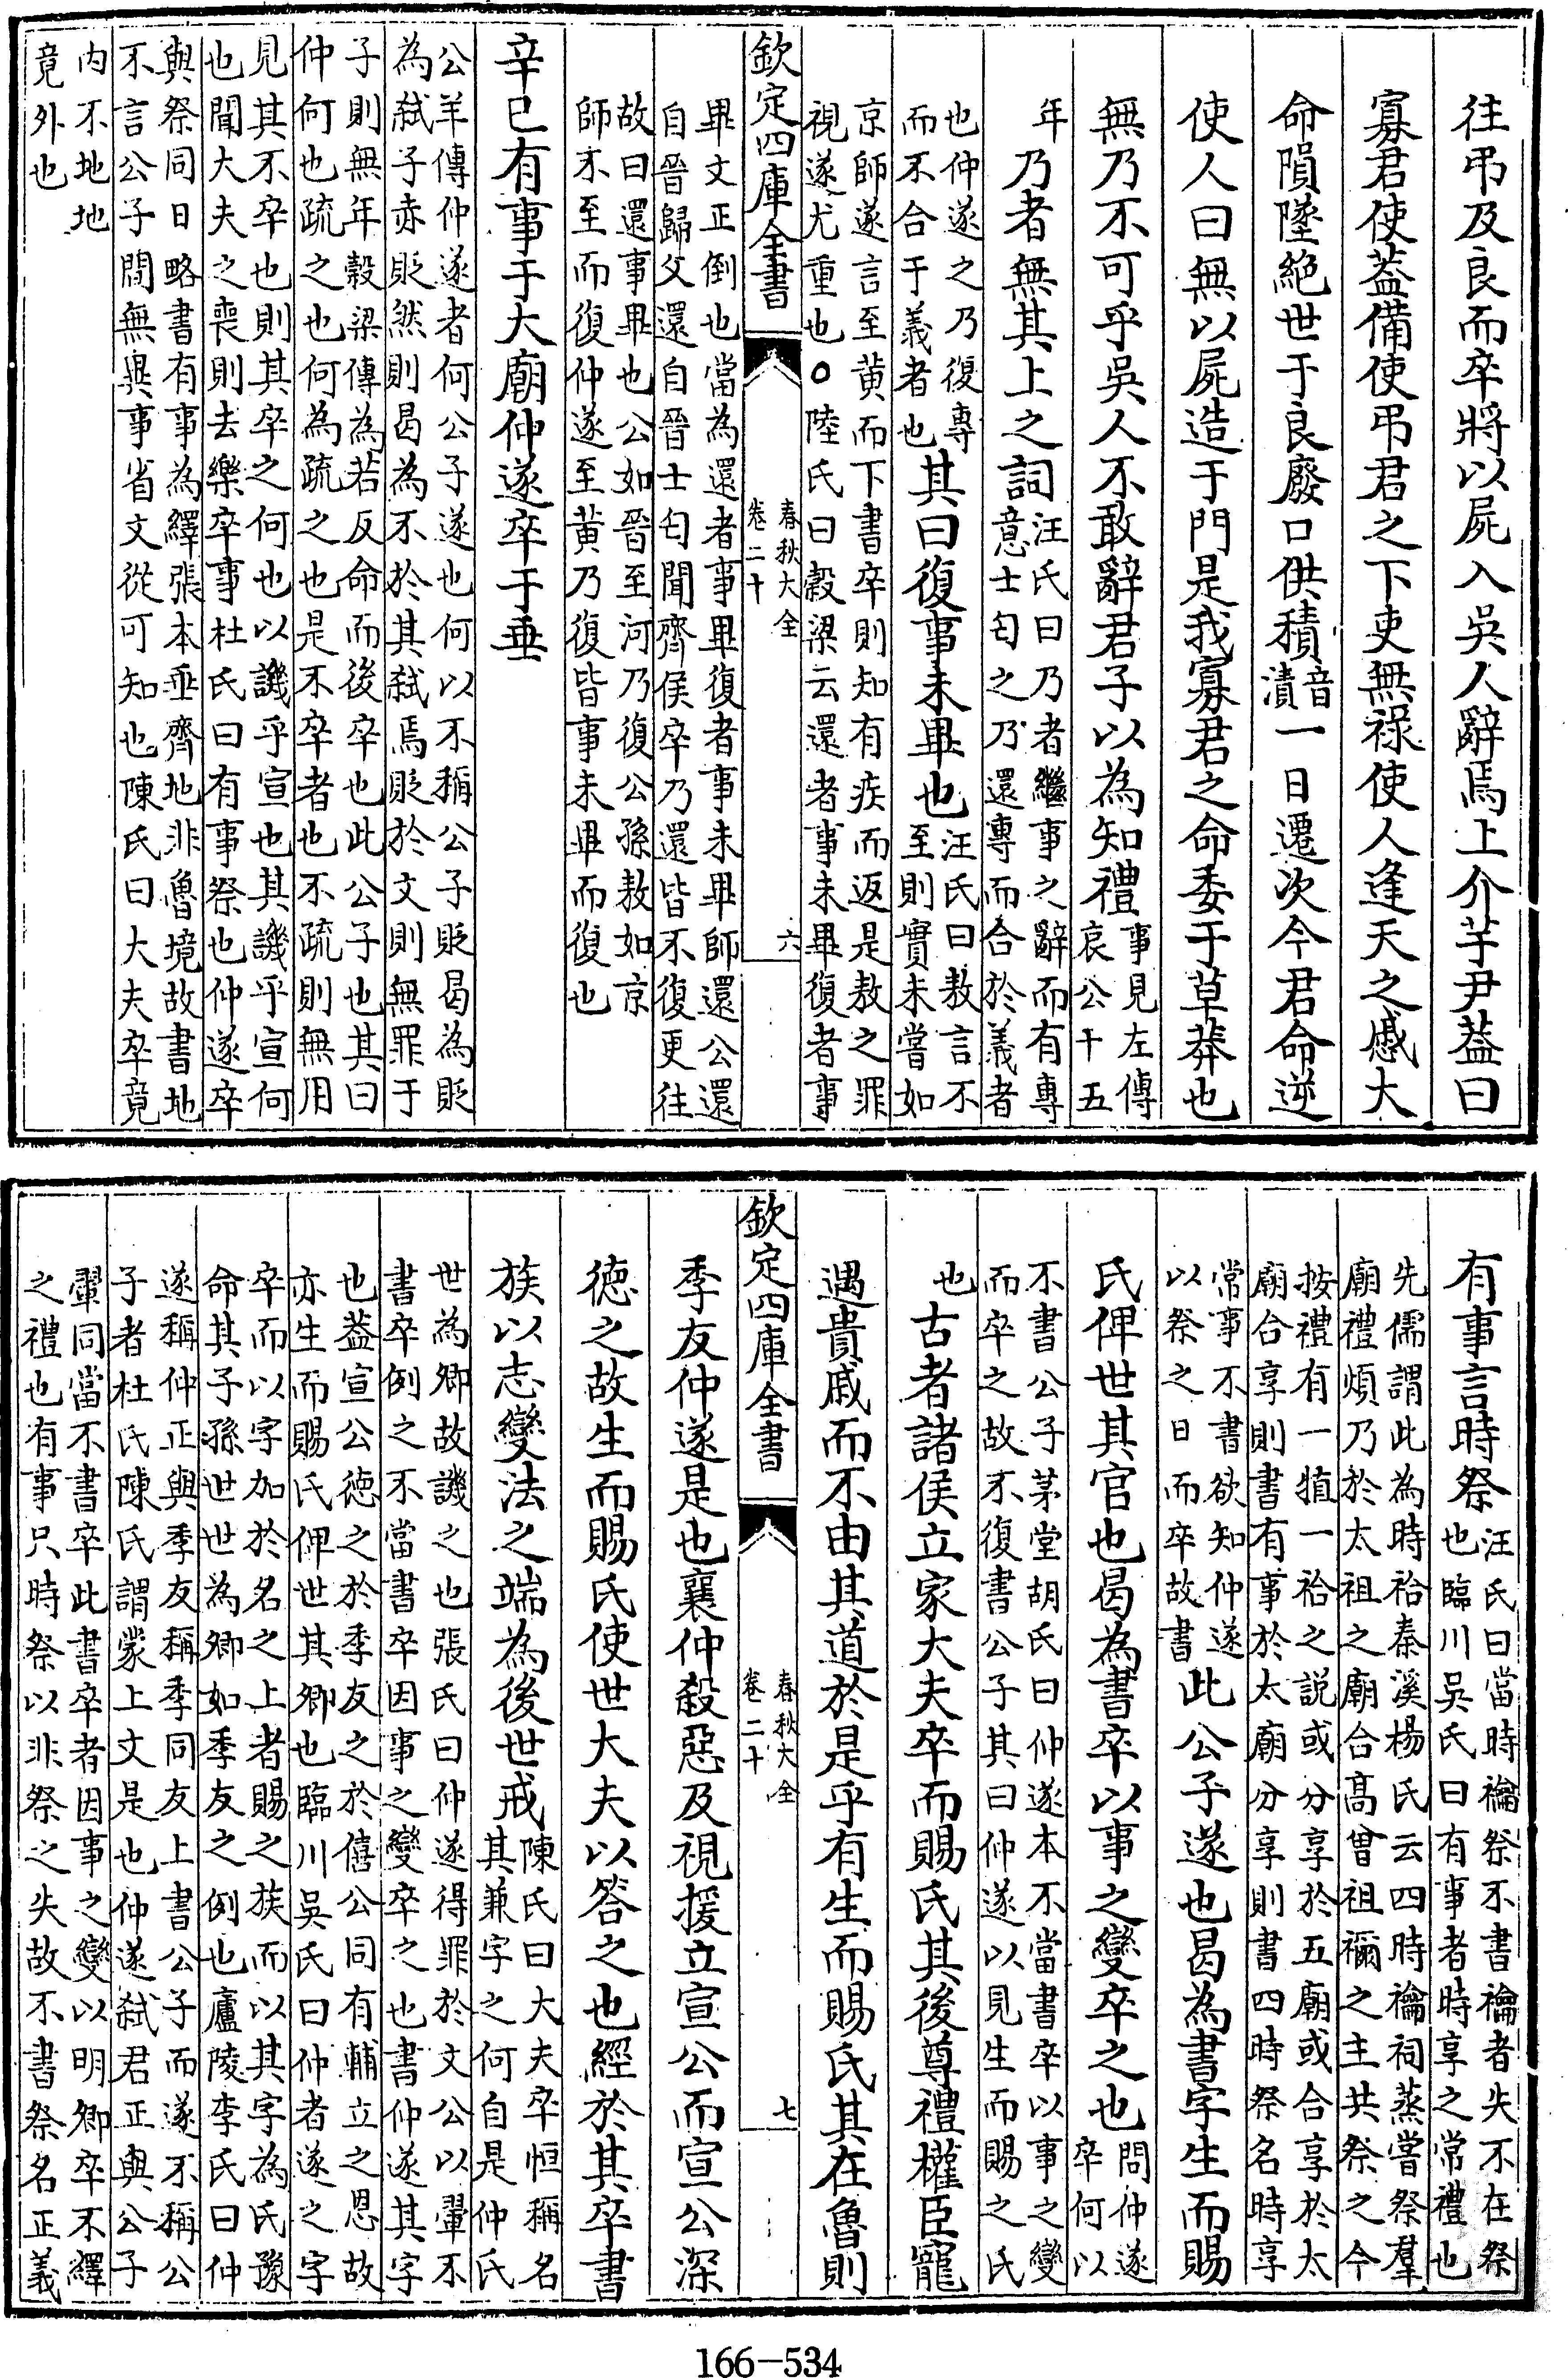 往弔及良而卒將以屍入吳人辭焉上介芋尹葢曰
寡君使葢備使弔君之下吏無祿使人逢天之慼大
命隕墜絶世于良廢口供積音漬一日遷次今君命逆
使人曰無以屍造于門是我寡君之命委于草莽也
無乃不可乎吳人不敢辭君子以為知禮事見左傳哀公十五
年乃者無其上之詞汪氏曰乃者繼事之辭而有專意士匄之乃還專而合於義者
也仲遂之乃復專而不合于義者也其曰復事未畢也汪氏曰敖言不至則實未嘗如
京師遂言至黄而下書卒則知有疾而返是敖之罪
視遂尤重也○陸氏曰榖梁云還者事未畢復者事
欽定四庫全書
春秋大全
卷二十
六
畢文正倒也當為還者事畢復者事未畢師還公還
自晉歸父還自晉士匄聞齊侯卒乃還皆不復更往
故曰還事畢也公如晉至河乃復公孫敖如京
師不至而復仲遂至黄乃復皆事未畢而復也
辛巳有事于大廟仲遂卒于垂
公羊傳仲遂者何公子遂也何以不稱公子貶曷為貶
為弑子赤貶然則曷為不於其弑焉貶於文則無罪于
子則無年榖梁傳為若反命而後卒也此公子也其曰
仲何也疏之也何為疏之也是不卒者也不疏則無用
見其不卒也則其卒之何也以譏乎宣也其譏乎宣何
也聞大夫之喪則去樂卒事杜氏曰有事祭也仲遂卒
與祭同日略書有事為繹張本垂齊地非魯境故書地
不言公子間無異事省文從可知也陳氏曰大夫卒竟
内不地地
竟外也
有事言時祭汪氏曰當時禴祭不書禴者失不在祭也臨川吳氏曰有事者時享之常禮也
先儒謂此為時祫秦溪楊氏云四時禴祠蒸嘗祭羣
廟禮煩乃於太祖之廟合髙曾祖禰之主共祭之今
按禮有一犆一祫之説或分享於五廟或合享於太
廟合享則書有事於太廟分享則書四時祭名時享
常事不書欲知仲遂以祭之日而卒故書此公子遂也曷為書字生而賜
氏俾世其官也曷為書卒以事之變卒之也問仲遂卒何以
不書公子茅堂胡氏曰仲遂本不當書卒以事之變
而卒之故不復書公子其曰仲遂以見生而賜之氏
也古者諸侯立家大夫卒而賜氏其後尊禮權臣寵
遇貴戚而不由其道於是乎有生而賜氏其在魯則
欽定四庫全書
春秋大全
卷二十
七
季友仲遂是也襄仲殺惡及視援立宣公而宣公深
徳之故生而賜氏使世大夫以答之也經於其卒書
族以志變法之端為後世戒陳氏曰大夫卒恒稱名其兼字之何自是仲氏
世為卿故譏之也張氏曰仲遂得罪於文公以翬不
書卒例之不當書卒因事之變卒之也書仲遂其字
也葢宣公徳之於季友之於僖公同有輔立之恩故
亦生而賜氏俾世其卿也臨川吳氏曰仲者遂之字
卒而以字加於名之上者賜之族而以其字為氏豫
命其子孫世世為卿如季友之例也廬陵李氏曰仲
遂稱仲正與季友稱季同友上書公子而遂不稱公
子者杜氏陳氏謂䝉上文是也仲遂弑君正與公子
翬同當不書卒此書卒者因事之變以明卿卒不繹
之禮也有事只時祭以非祭之失故不書祭名正義
166-534